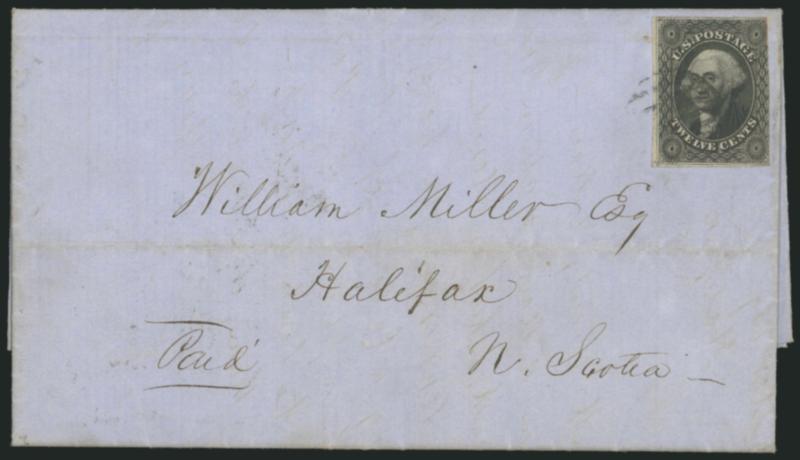 U.S. POSTAGE
TWELVE CENTS
William Miller Esq
Halifax
Paid
N. Scotia